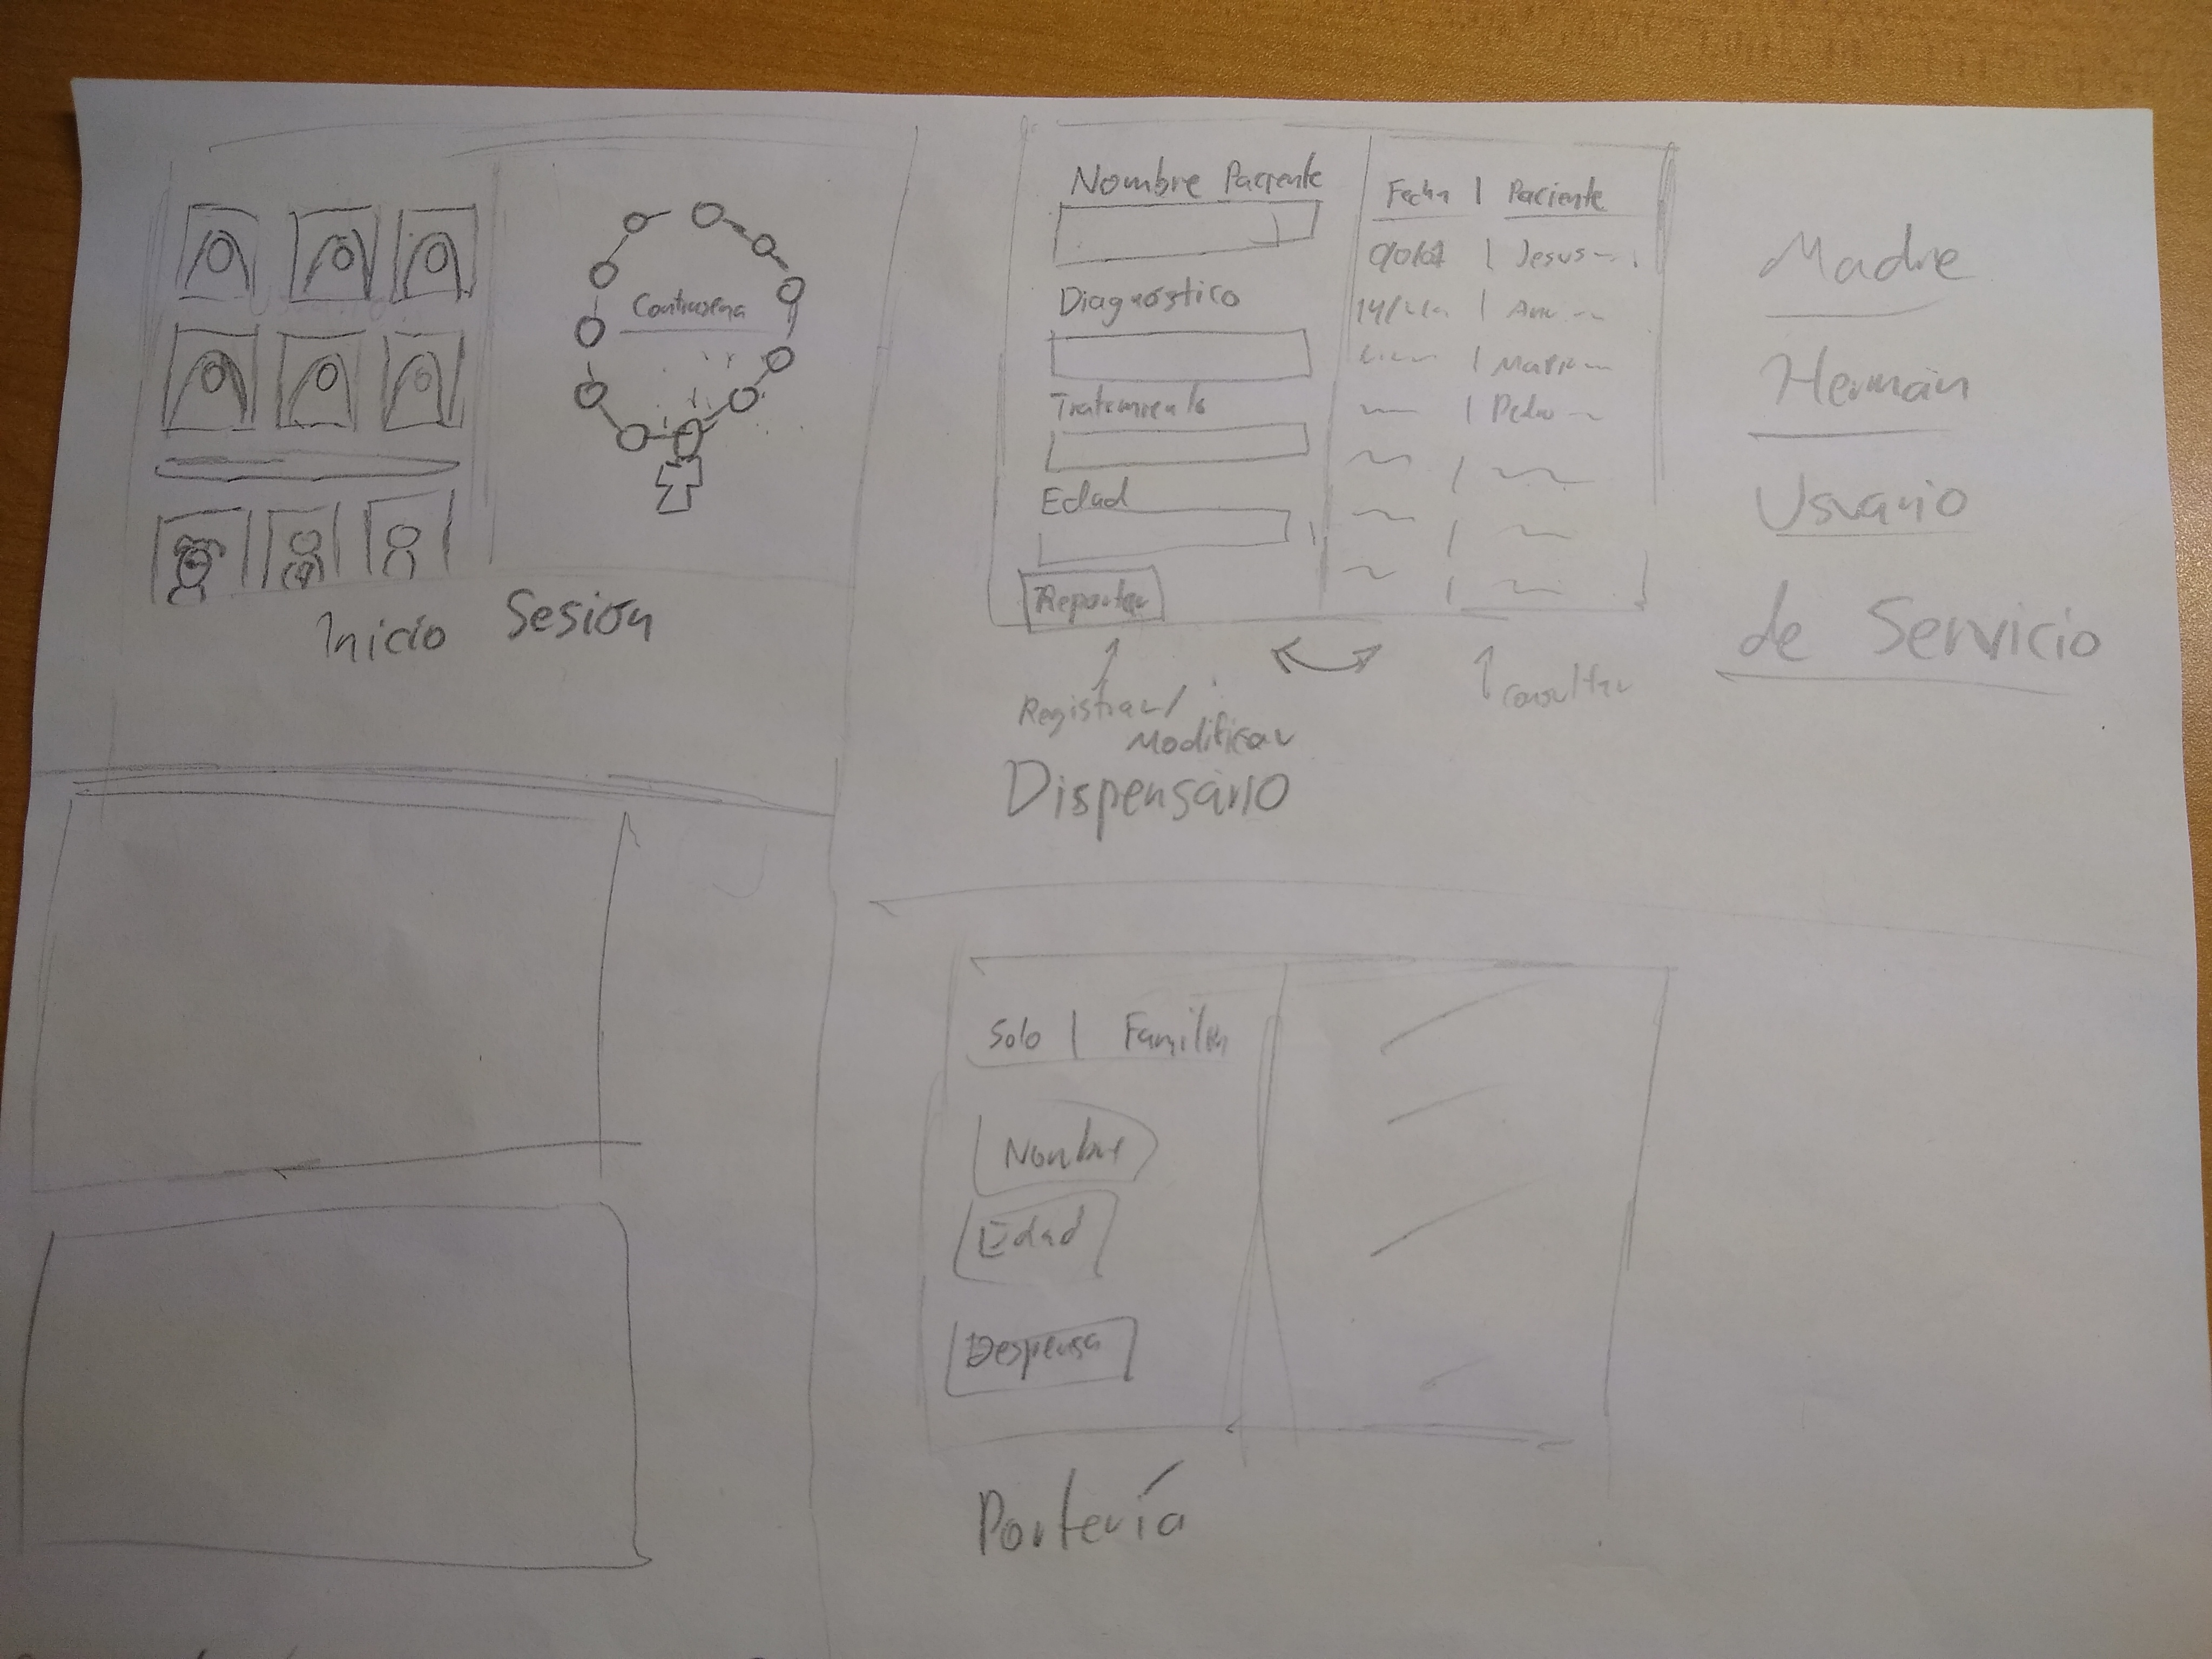 Contraseña
Inicio Sesión
Nombre Paciente
Diagnóstico
Tratamiento
Edad
Reportar
Fecha | Paciente
| Jesus
14/ | Ana
| Mari
| Pedro
Registrar/
Modificar
Consultar
Dispensario
Madre
Herman
Usuario
de Servicio
Solo | Familia
Nombre
Edad
Despensa
Portería